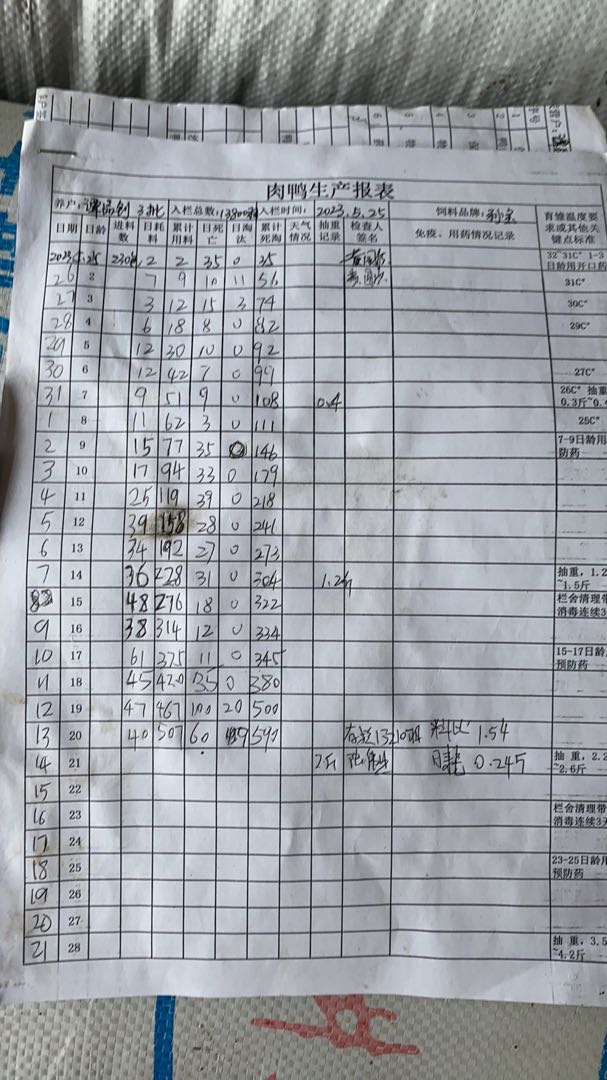 肉鸭生产报表
养户: 3批 入栏总数:13800 入栏时间: 2023.5.25 饲料品牌:
日期 日龄 进料数 日耗料 累计用料 日死亡 日淘汰 累计死淘 天气情况 抽重记录 检查人签名 免疫、用药情况记录 育雏温度要求或其他关键点标准
2023.5.25 230包 2 2 35 0 35 32~31C° 1-3日龄用开口药
26 2 7 9 10 11 56 31C°
27 3 3 12 15 3 74 30C°
28 4 6 18 8 0 82 29C°
29 5 12 30 10 0 92
30 6 12 42 7 0 99 27C°
31 7 9 51 9 0 108 0.4 26C° 抽重
1 8 11 62 3 0 111 25C°
2 9 15 77 35 0 146 7-9日龄用防药
3 10 17 94 33 0 179
4 11 25 119 39 0 218
5 12 39 158 28 0 246
6 13 34 192 27 0 273
7 14 36 228 31 0 304 1.2斤 抽重,1.2~1.5斤
15 48 276 18 0 322 栏舍清理带消毒连续3
9 16 38 314 12 0 334
10 17 61 375 11 0 345 15-17日龄预防药
11 18 45 420 35 0 380
12 19 47 467 100 20 500
13 20 40 507 60 590 存栏13210 料比 1.54
14 21 2斤 日耗 0.245 抽重,2.2~2.6斤
15 22
16 23 栏舍清理带消毒连续3天
17 24
18 25 23-25日龄用预防药
19 26
20 27
21 28 抽重,3.5~4.2斤